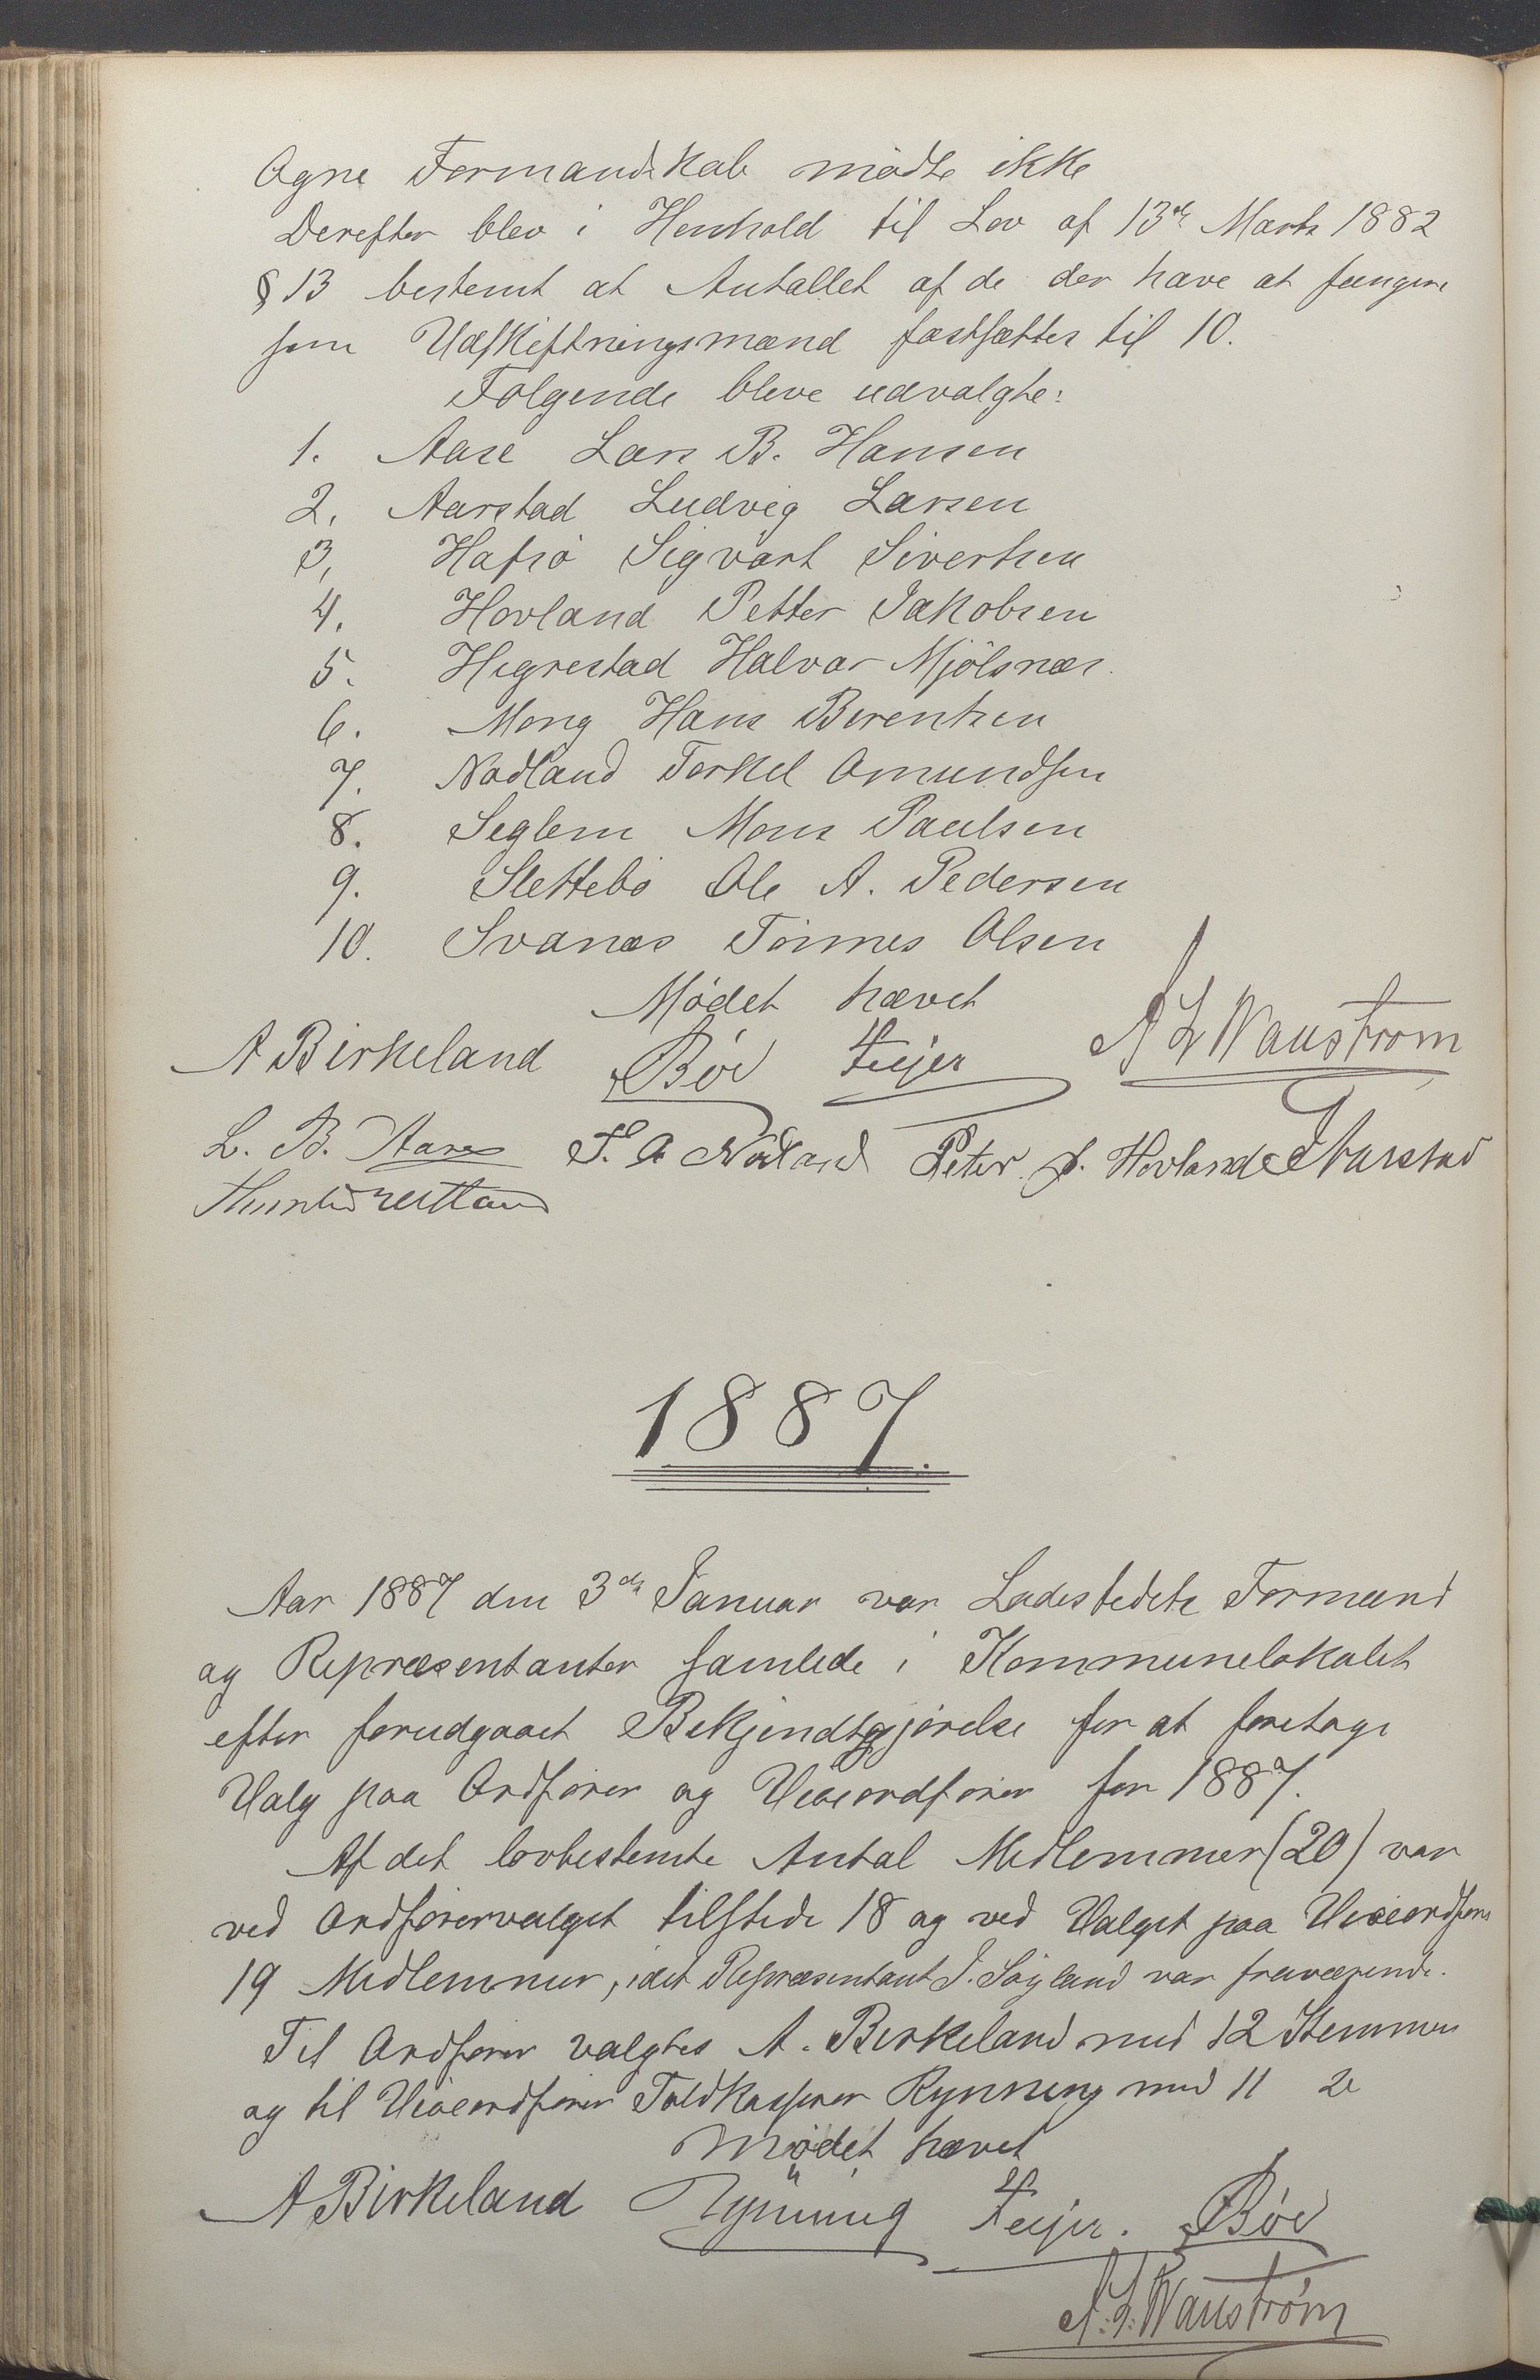 Ogne Formandskab mødte ikke
Derefter blev i Henhold til Lov af 13de Marts 1882
§ 13 bestemt at Antallet af de der have at fungere
som Udskiftningsmænd fastsættes til 10.
Følgende bleve udvalgte:
1. Aase Lars B. Hansen
2. Aarstad Ludvig Larsen
3, Hafsø Sigvart Sivertsen
4. Hovland Petter Jakobsen
5. Hegrestad Halvor Mjølsnæs.
6. Mong Hans Berentsen
7. Nodland Torkel Omundsen
8. Seglem Mons Paulsen
9. Slettebø Ole A. Pedersen
10. Svanæs Tönnes Olsen
Mødet hævet
A Birkeland Bøe Feyer A L Wauström
L. B. Aase T. O. Nodland Peter J. Hovland Aarstad
1887.
Aar 1887 den 3die Januar var Ladestedets Formænd
og Repræsentanter samlede i Kommunelokalet
efter forudgaaet Bekjendtgjørelse for at foretage
Valg paa Ordfører og Viceordfører for 1887.
Af det lovbestemte Antal Medlemmer (20) var
ved Ordførervalget tilstede 18 og ved Valget paa Viceordfører
19 Medlemmer, idet Repræsentant J. Søyland var fraværende.
Til Ordfører valgtes A. Birkeland med 12 Stemmer
og til Viceordfører Toldkasserer Rynning med 11
Mødet hævet
A Birkeland Rynning Feyer. Bøe
A. L. Wauström